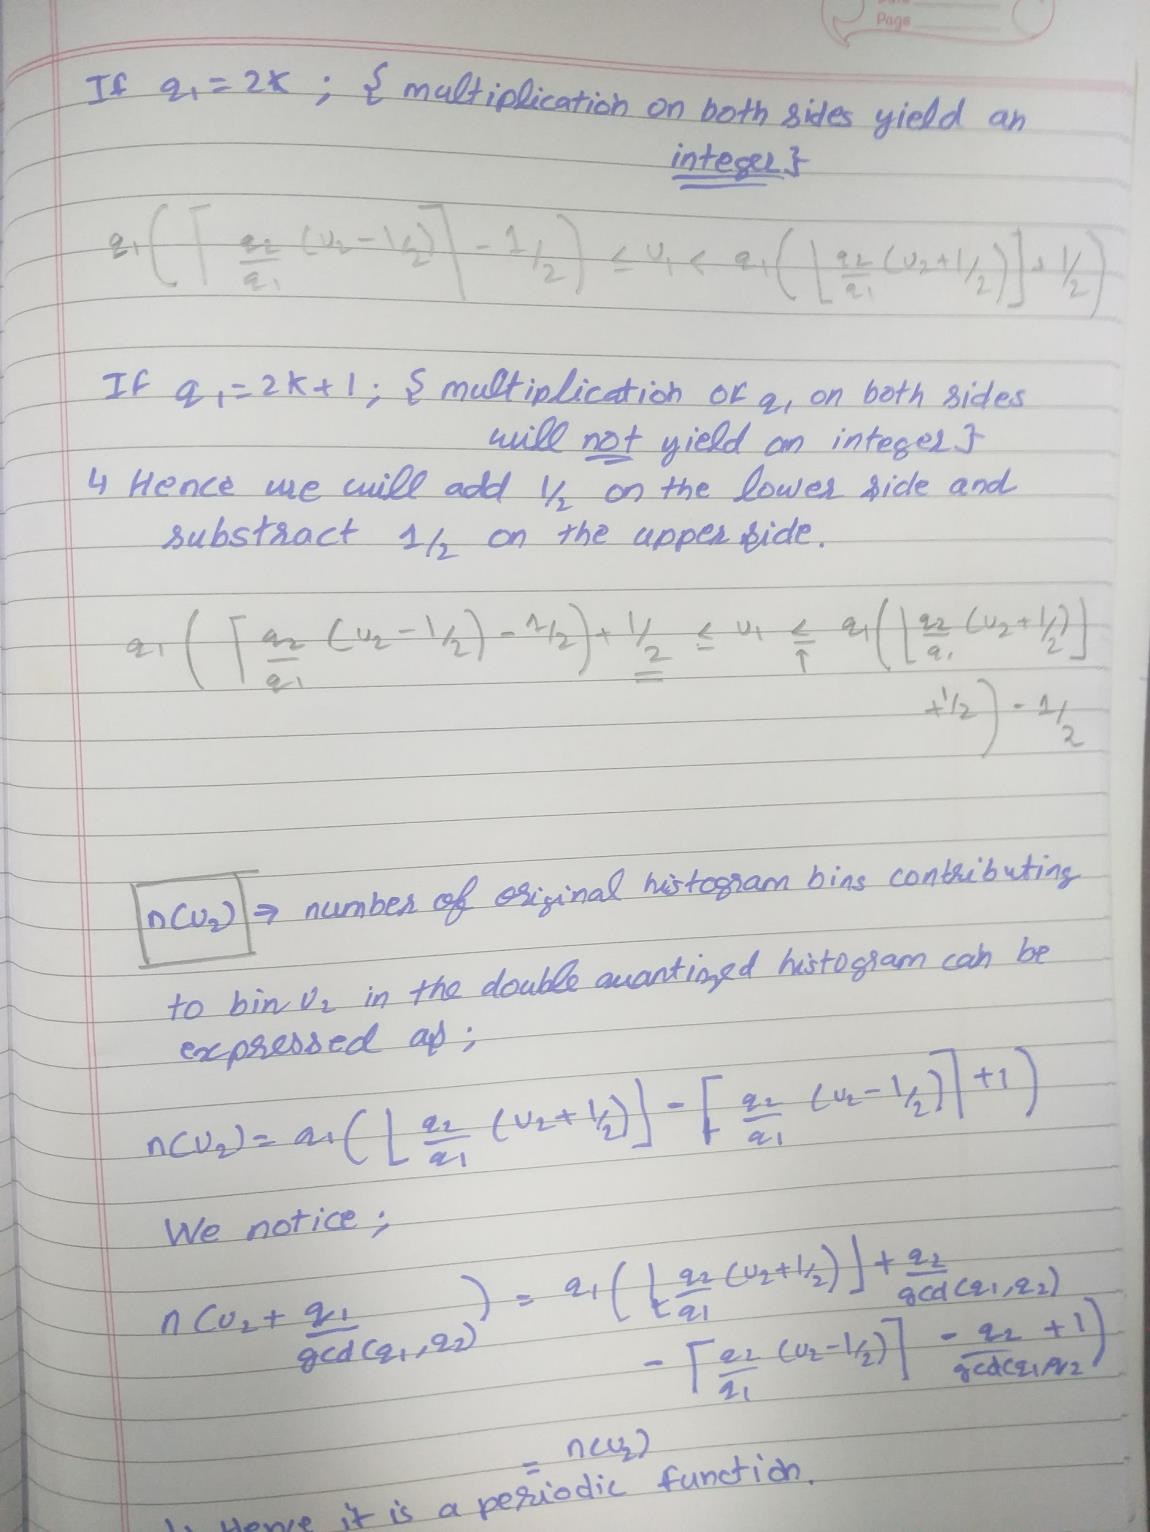 Page
If q₁ = 2k ; { multiplication on both sides yield an
integer }
q₁ ( ⌈ q₂/q₁ (u₂ - 1/2) ⌉ - 1/2 ) ≤ u₁ < q₁ ( ⌊ q₂/q₁ (u₂ + 1/2) ⌋ + 1/2 )
If q₁ = 2k + 1 ; { multiplication of q₁ on both sides
will not yield an integer }
↳ Hence we will add 1/2 on the lower side and
substract 1/2 on the upper side.
q₁ ( ⌈ q₂/q₁ (u₂ - 1/2) - 1/2 ) + 1/2 ≤ u₁ ≤ q₁ ( ⌊ q₂/q₁ (u₂ + 1/2) ⌋
↑
+ 1/2 ) - 1/2
n(u₂) ⇒ number of original histogram bins contributing
to bin u₂ in the double quantized histogram can be
expressed as ;
n(u₂) = q₁ ( ⌊ q₂/q₁ (u₂ + 1/2) ⌋ - ⌈ q₂/q₁ (u₂ - 1/2) ⌉ + 1 )
We notice ;
n ( u₂ + q₁/gcd(q₁, q₂) ) = q₁ ( ⌊ q₂/q₁ (u₂ + 1/2) ⌋ + q₂/gcd(q₁, q₂)
- ⌈ q₂/q₁ (u₂ - 1/2) ⌉ - q₂/gcd(q₁, q₂ + 1 )
= n(u₂)
↳ Hence it is a periodic function.